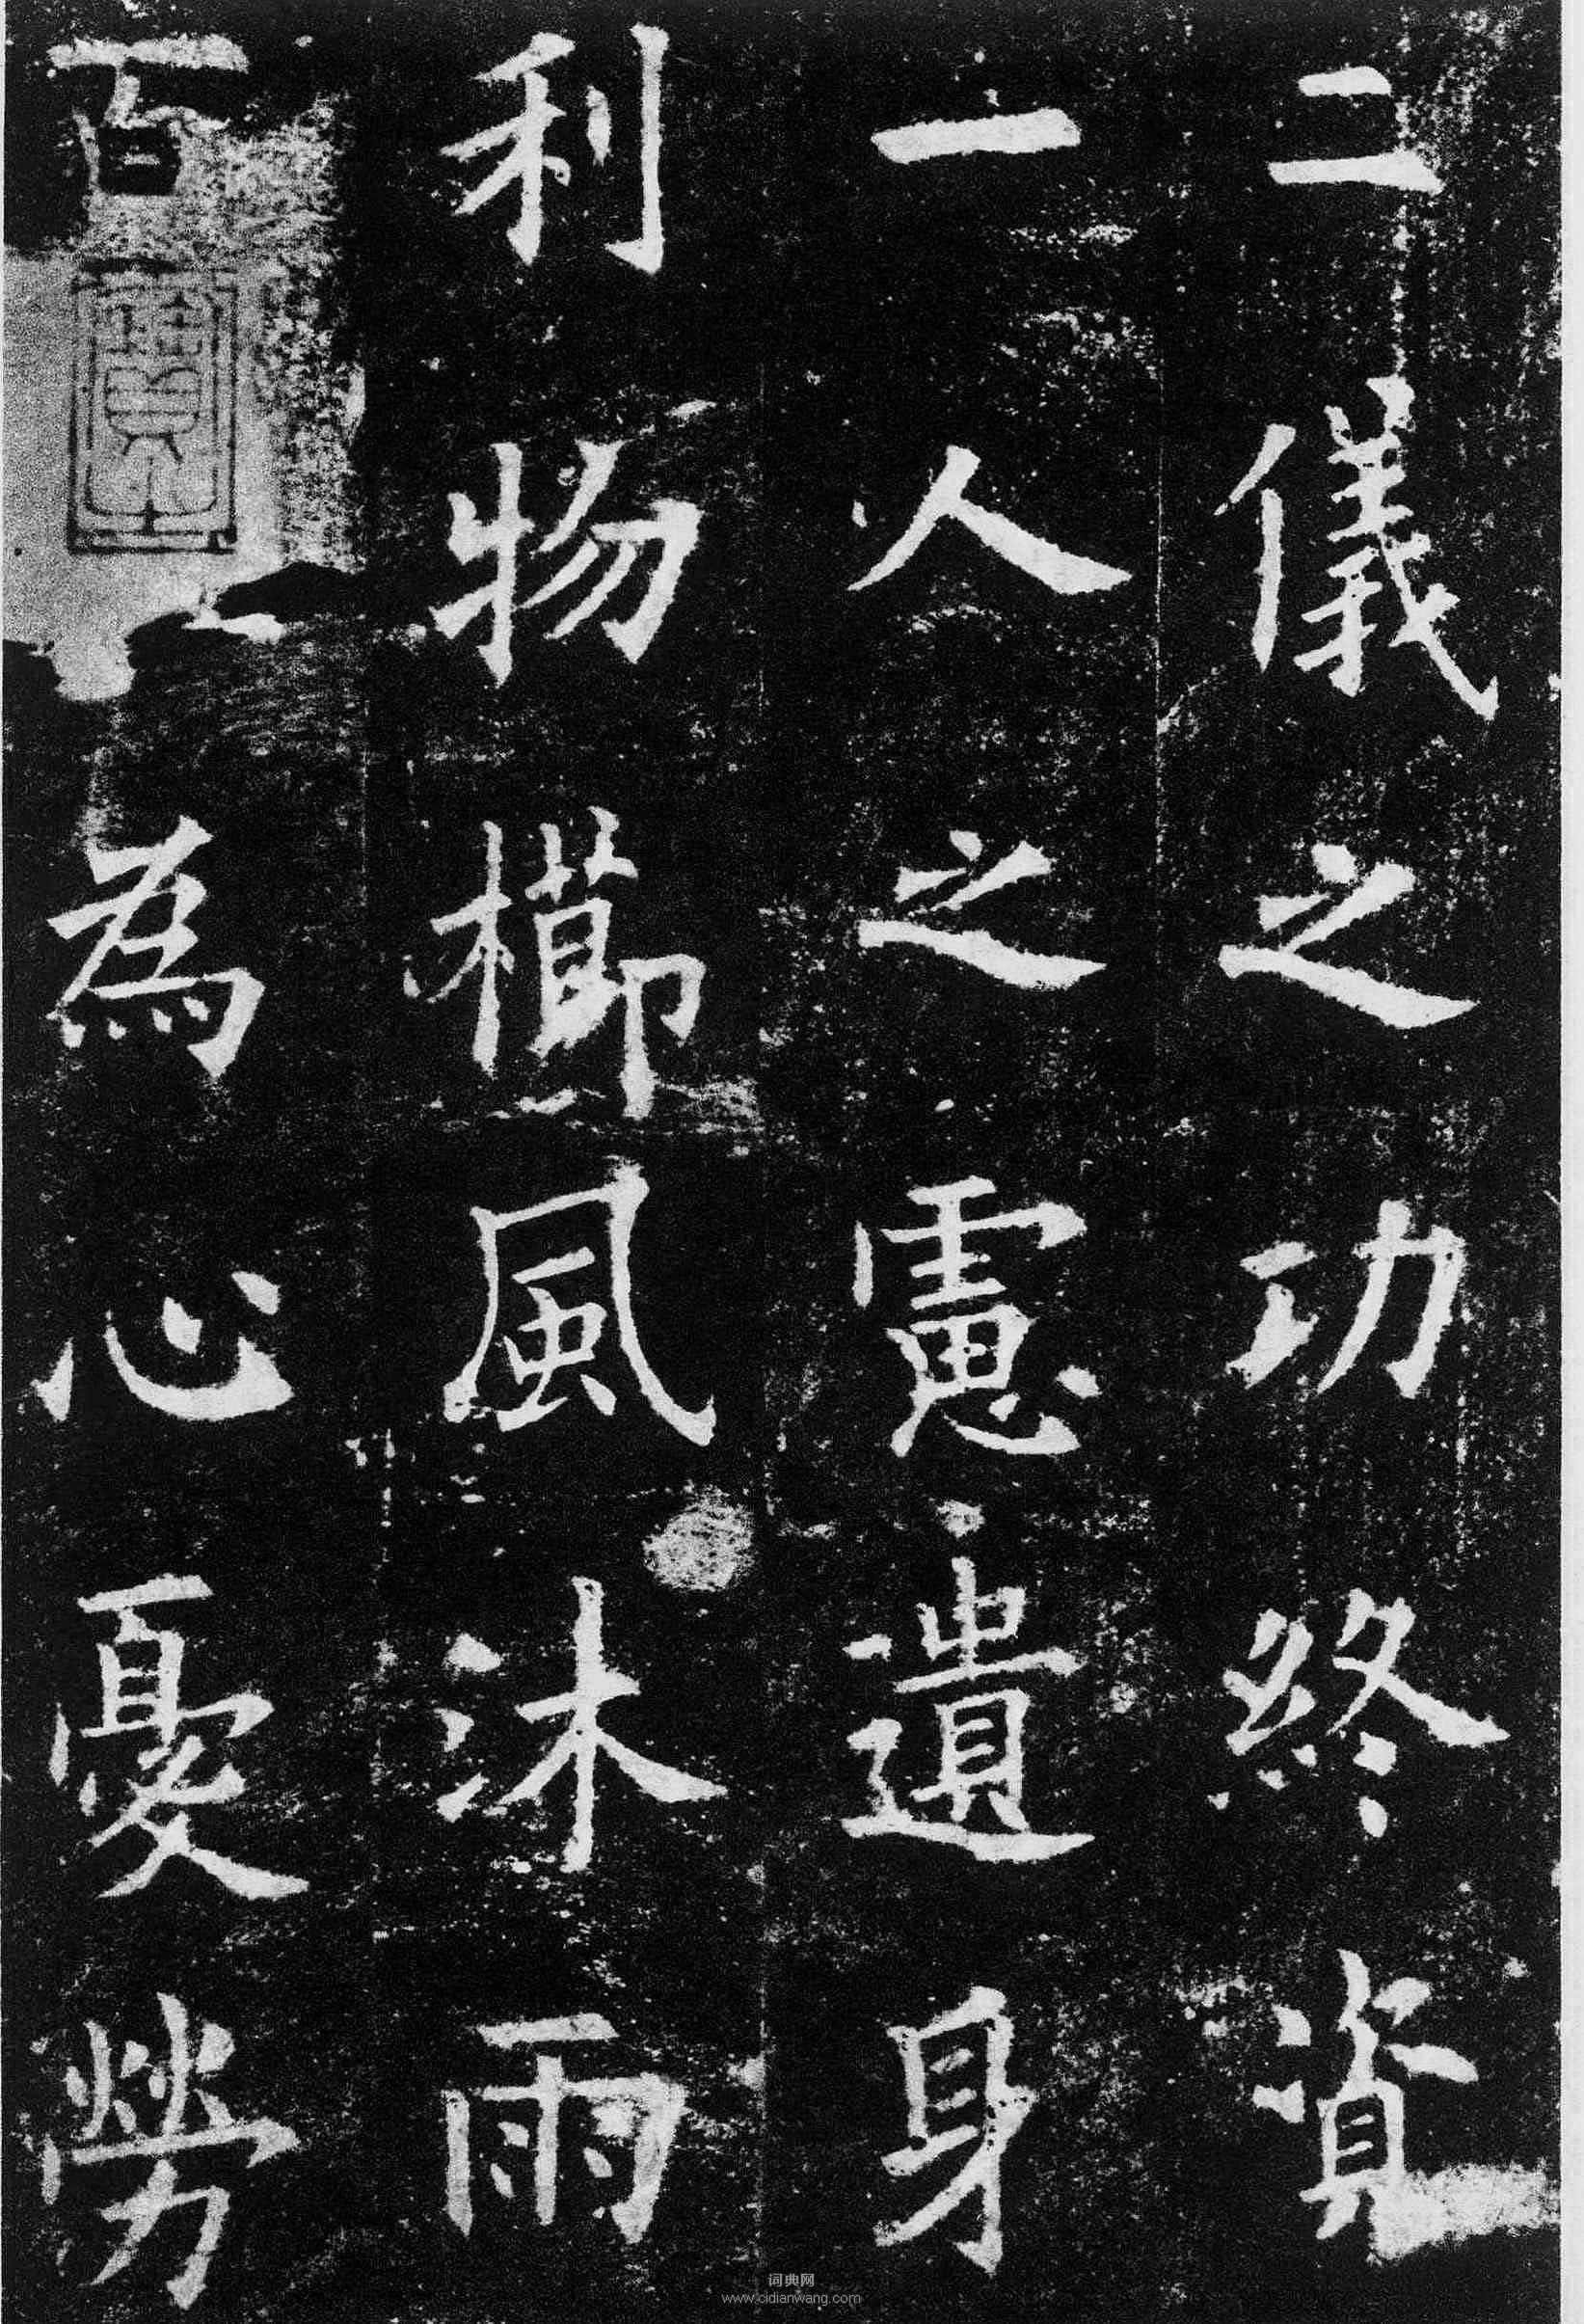 二儀之功終資
一人之慮遺身
利物櫛風沐雨
百
為心憂勞
词典网
www.cidianwang.com